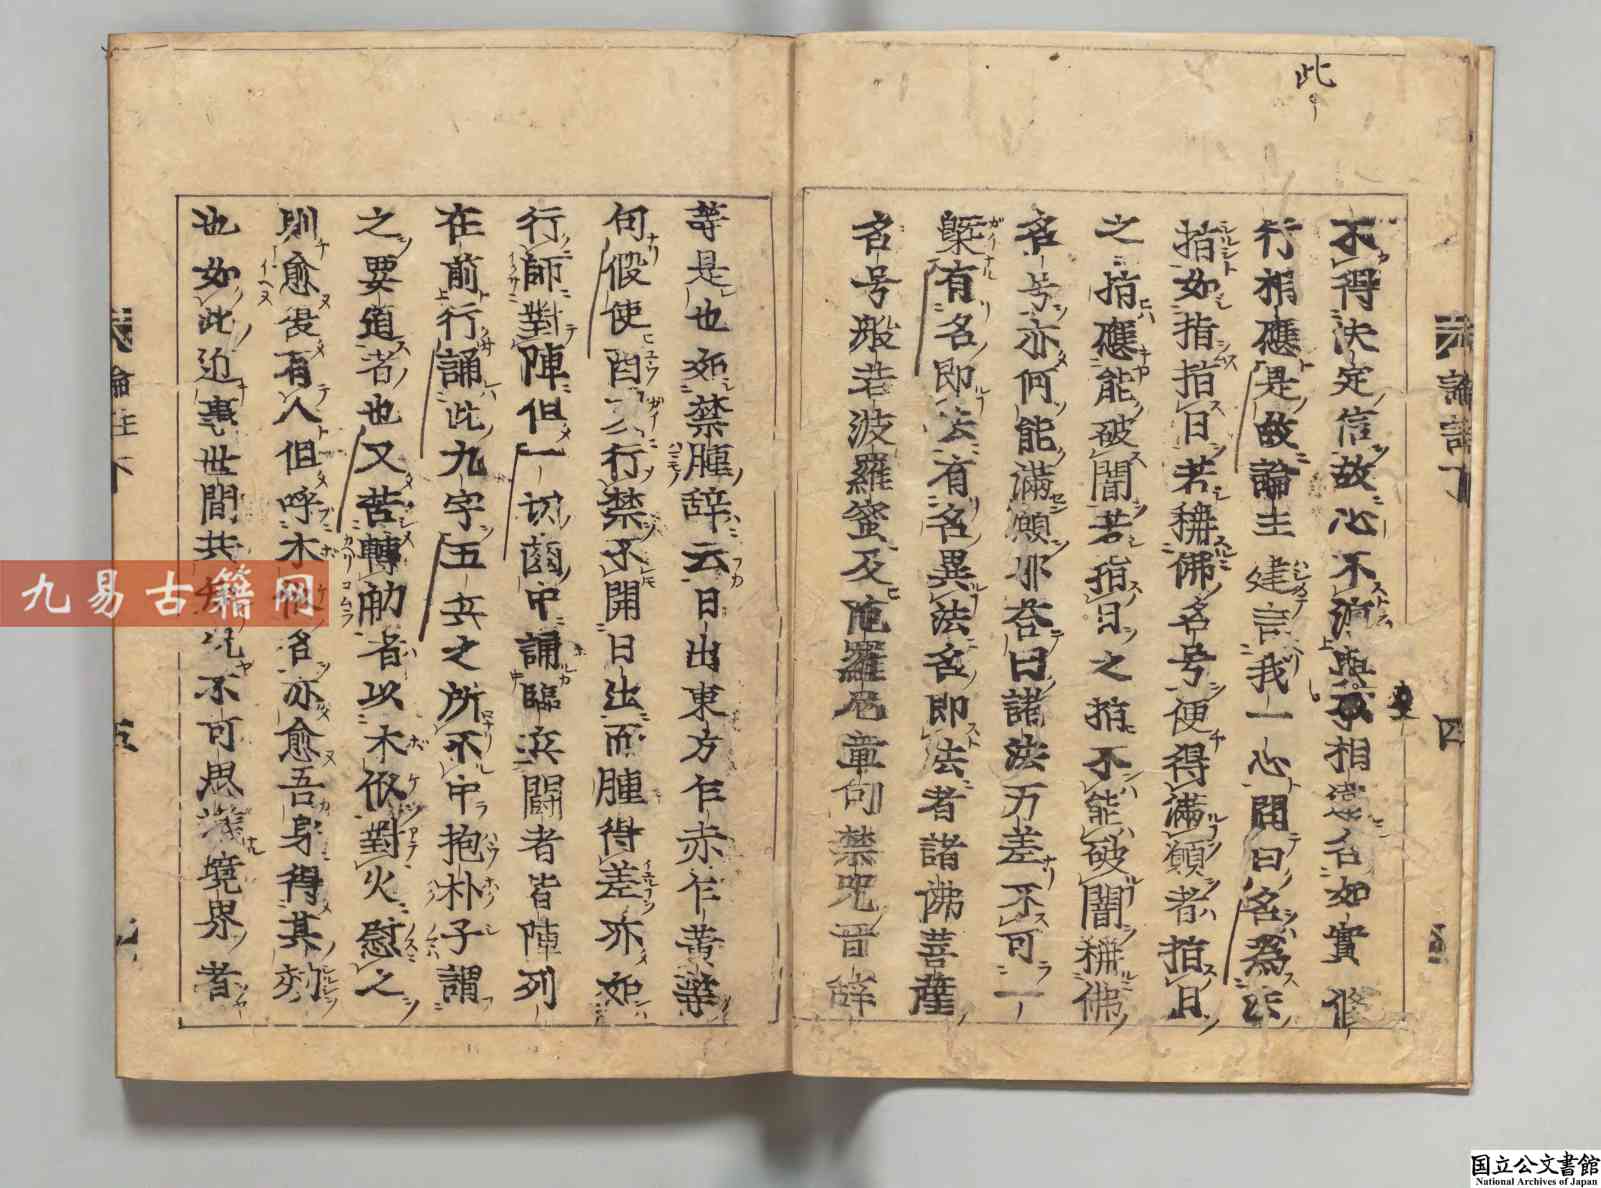 此
不得決定信故心不淳與此相違名如實修
行相應是故論主建言我一心問曰名為法
指如指指日若稱佛名号便得滿願者指日
之指應能破闇若指日之指不能破闇稱佛
名号亦何能滿願耶答曰諸法万差不可一
槩有名即法有名異法名即法者諸佛菩薩
名号般若波羅蜜及陁羅尼章句禁咒音辞
論註下
四
等是也如禁腫辞云日出東方乍赤乍黄等
句假使酉亥行禁不開日出而腫得差亦如
行師對陣但一切齒中誦臨兵鬪者皆陣列
在前行誦此九字五兵之所不中抱朴子謂
之要道者也又苦轉筋者以木𤓰對火慰之
則愈復有人但呼木𤓰名亦愈吾身得其効
也如此近事世間共知況不可思議境界者
論註下
五
九易古籍网
国立公文書館
National Archives of Japan